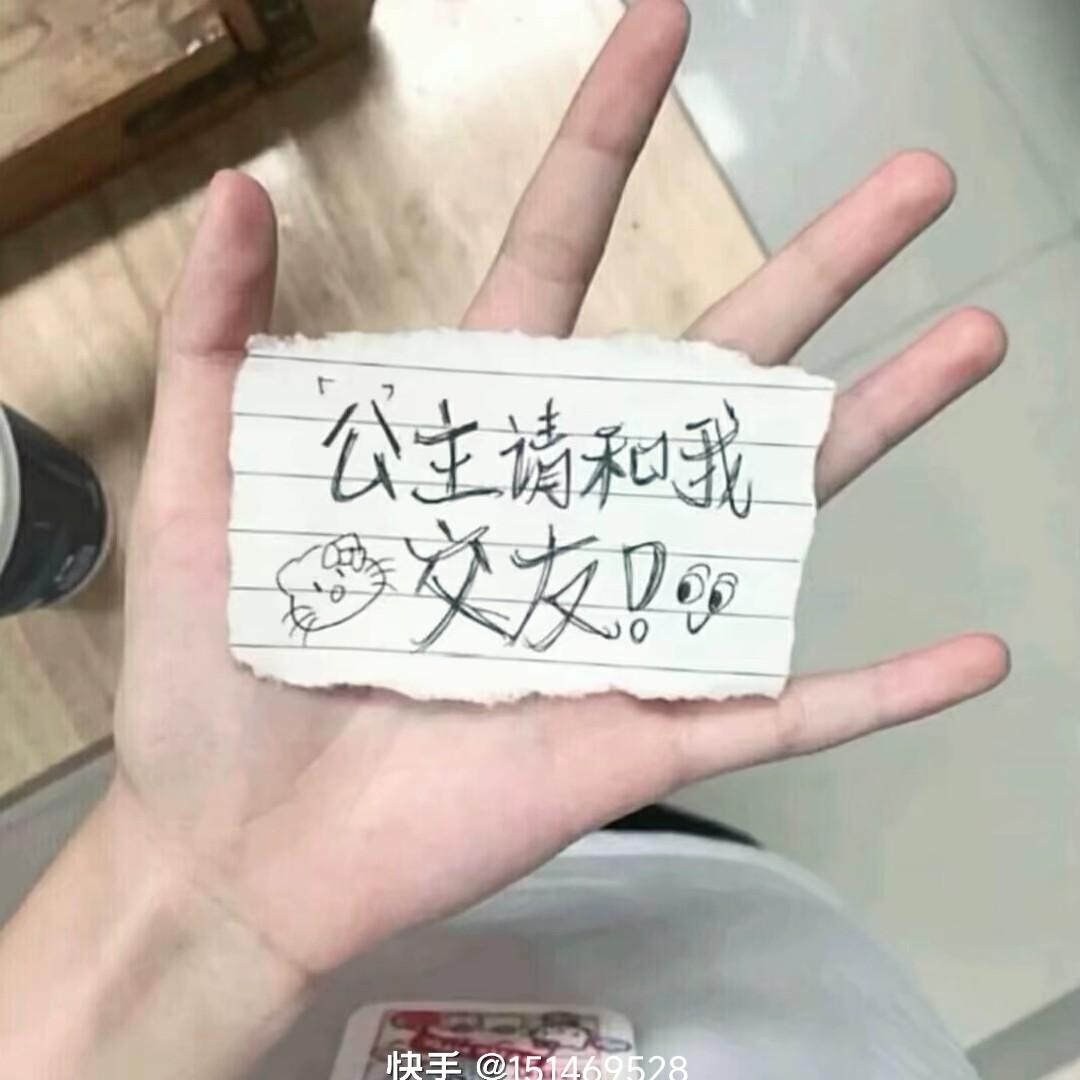 「公」主请和我
交友!
快手 @151469528